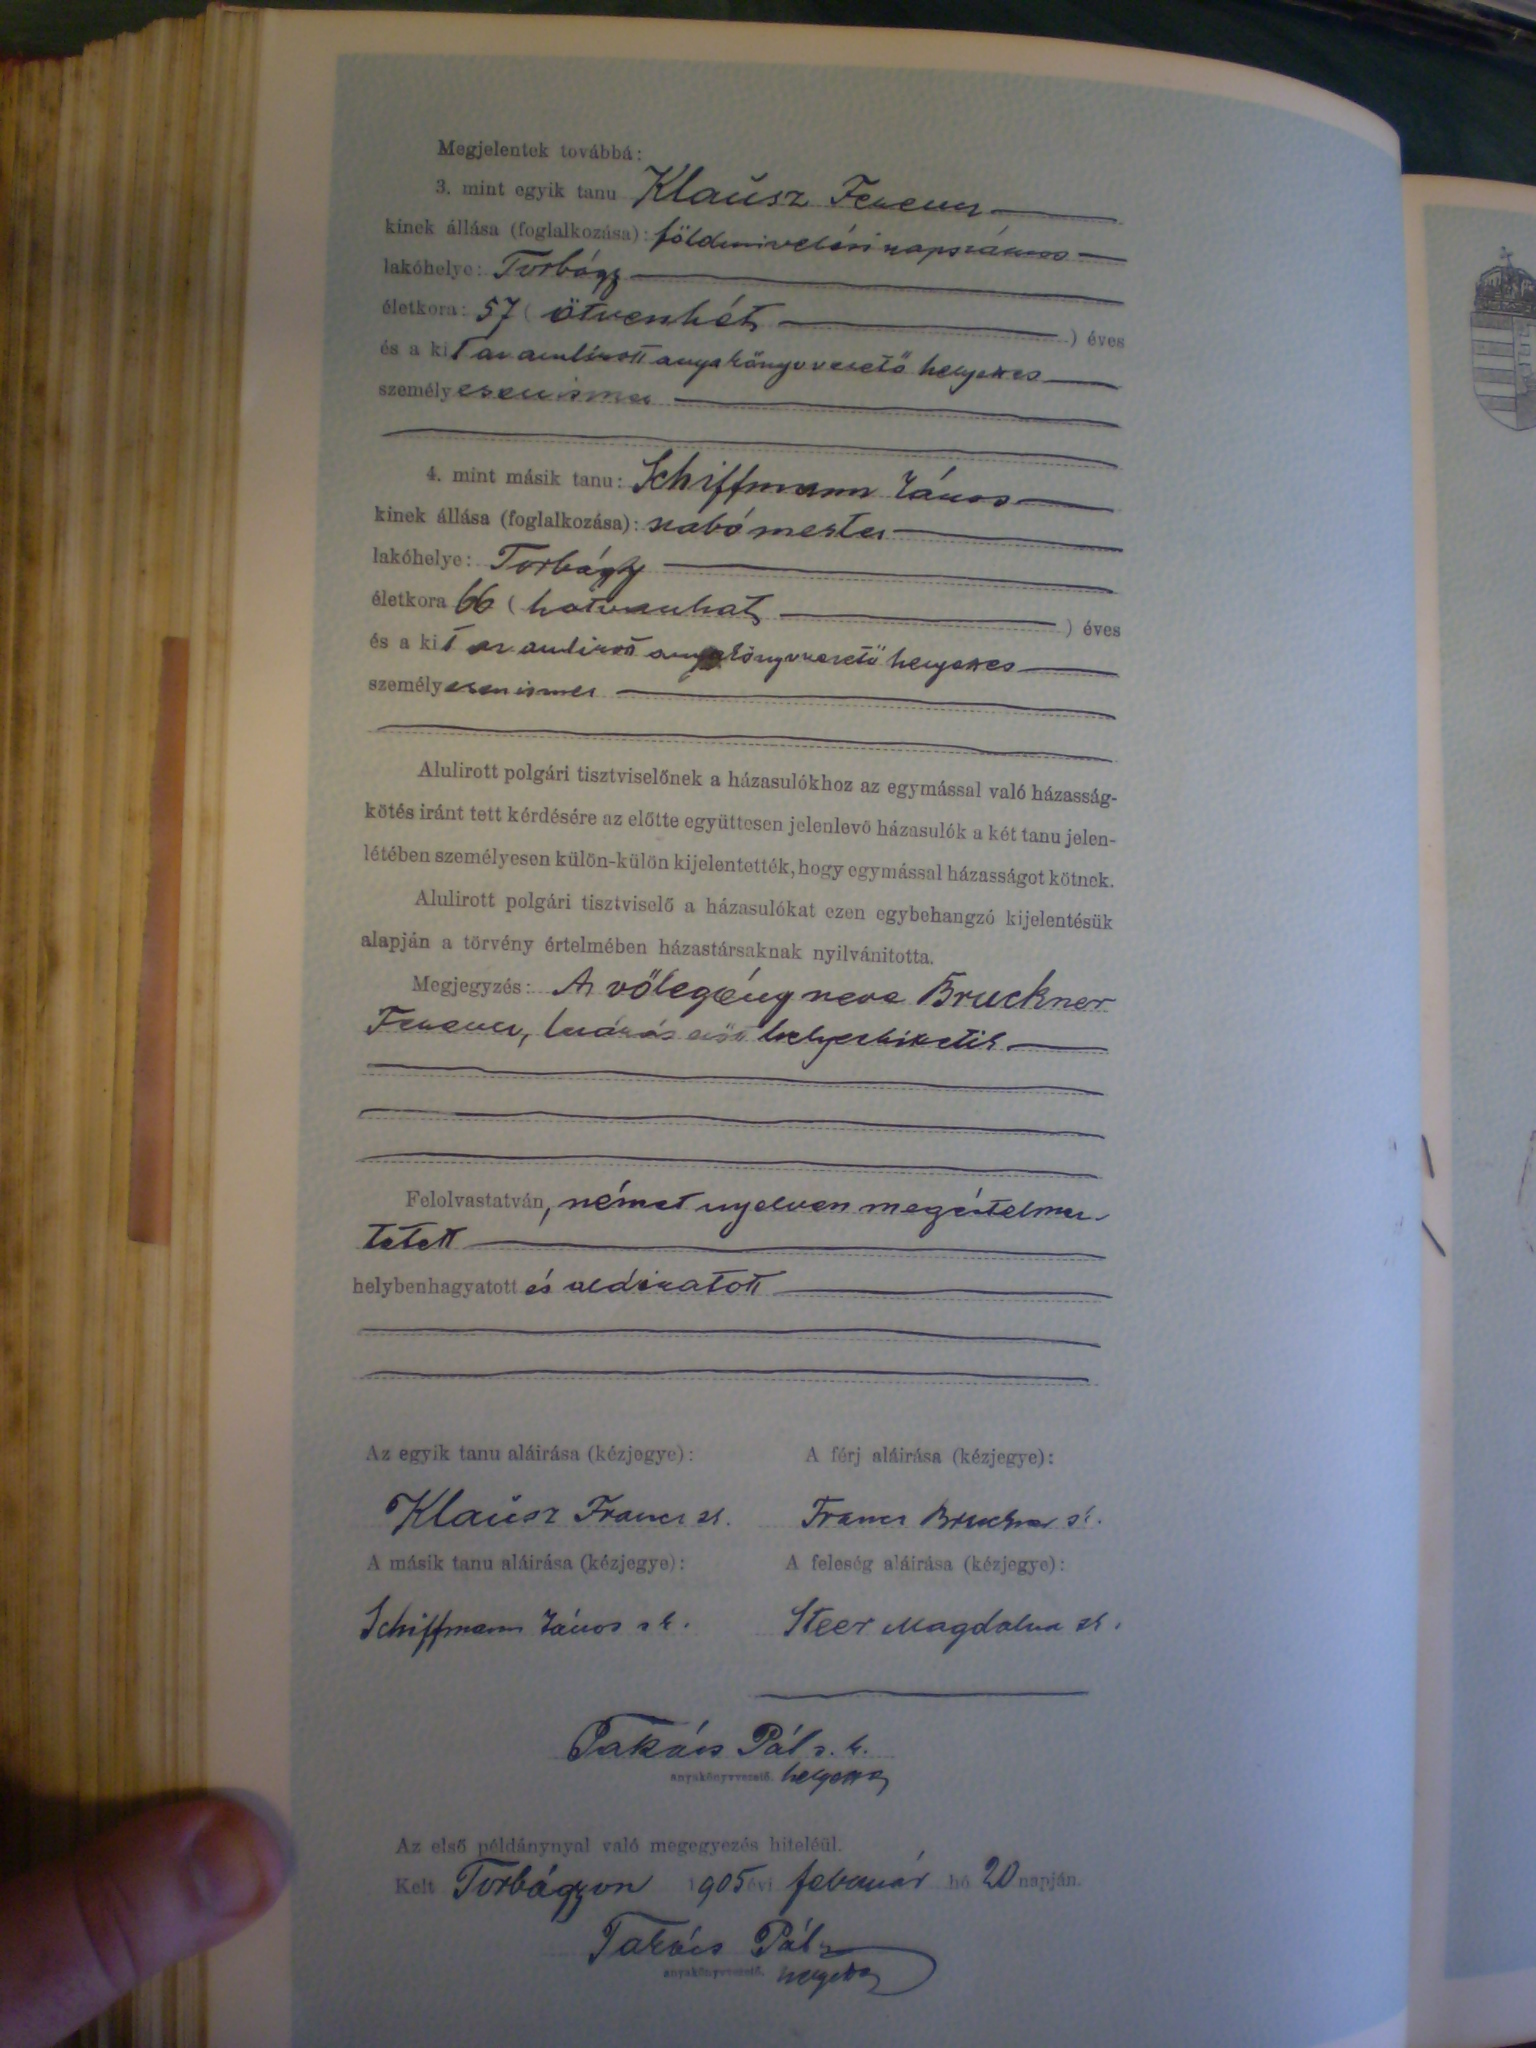 Megjelentek továbbá:
3. mint egyik tanu Klaüsz Ferencz
kinek állása (foglalkozása): földmivelési napszámos
lakóhelye: Torbágy
életkora: 57 ( ötvenhét ) éves
és a kit az alulirott anyakönyvvezető helyettes
személyesen ismer
4. mint másik tanu: Schiffmann János
kinek állása (foglalkozása): szabó mester
lakóhelye: Torbágy
életkora 66 ( hatvanhat ) éves
és a kit az alulirott anyakönyvvezető helyettes
személyesen ismer
Alulirott polgári tisztviselőnek a házasulókhoz az egymással való házasság-
kötés iránt tett kérdésére az előtte együttesen jelenlevő házasulók a két tanu jelen-
létében személyesen külön-külön kijelentették, hogy egymással házasságot kötnek.
Alulirott polgári tisztviselő a házasulókat ezen egybehangzó kijelentésük
alapján a törvény értelmében házastársaknak nyilvánitotta.
Megjegyzés: A vőlegény neve Bruckner
Ferencz, helyesbittetik
Felolvastatván, német nyelven megértelmez-
tetett
helybenhagyatott és aláiratott
Az egyik tanu aláirása (kézjegye): A férj aláirása (kézjegye):
Klaüsz Francz sk. Francz Bruckner sk.
A másik tanu aláirása (kézjegye): A feleség aláirása (kézjegye):
Schiffmann János sk. Steer Magdolna sk.
Takács Pál s. k.
anyakönyvvezető. helyettes
Az első példánynyal való megegyezés hiteléül.
Kelt Torbágyon 1905 évi február hó 20 napján.
Takács Pál
anyakönyvvezető. helyettes